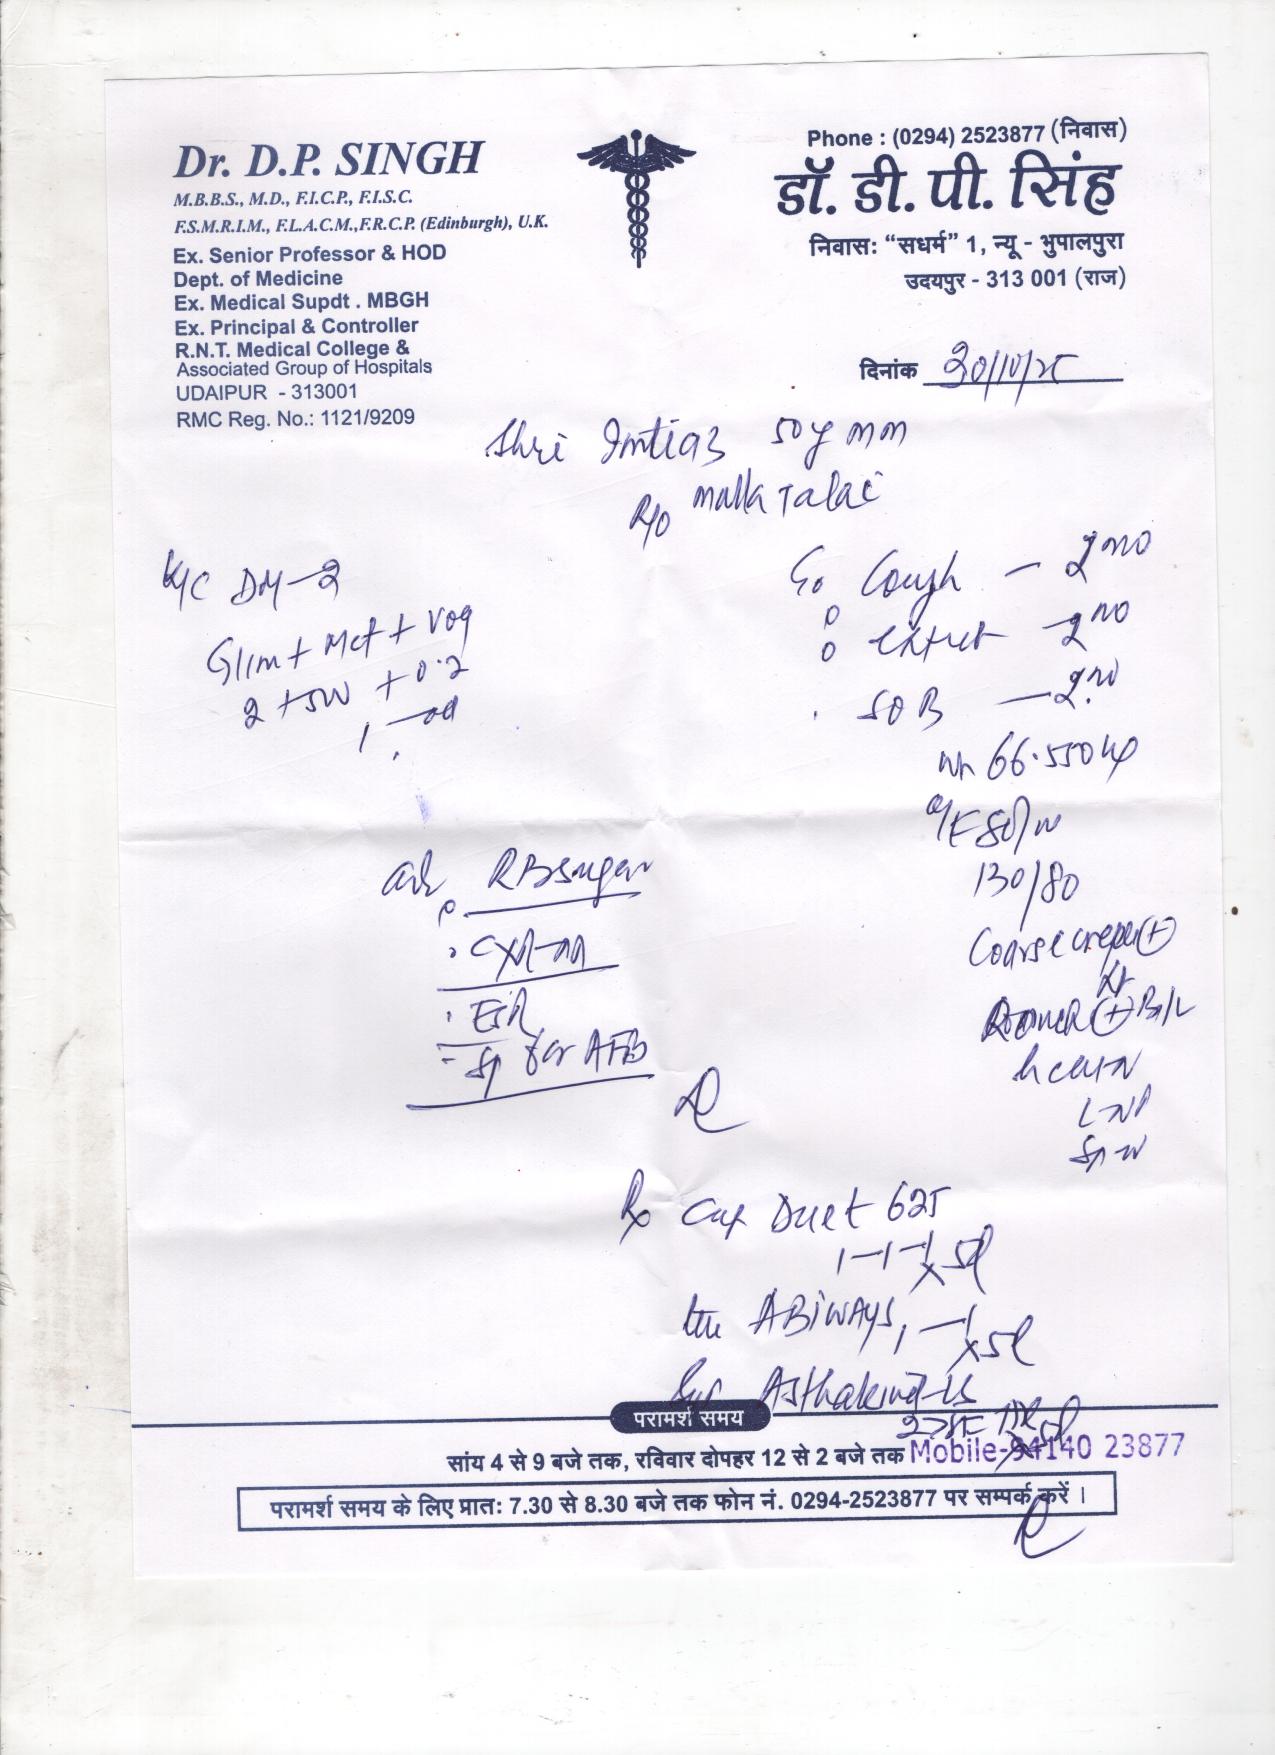 Dr. D.P. SINGH
M.B.B.S., M.D., F.I.C.P., F.I.S.C.
F.S.M.R.I.M., F.L.A.C.M.,F.R.C.P. (Edinburgh), U.K.
Ex. Senior Professor & HOD
Dept. of Medicine
Ex. Medical Supdt . MBGH
Ex. Principal & Controller
R.N.T. Medical College &
Associated Group of Hospitals
UDAIPUR - 313001
RMC Reg. No.: 1121/9209
Phone : (0294) 2523877 (निवास)
डॉ. डी. पी. सिंह
निवास: “सधर्म” 1, न्यू - भुपालपुरा
उदयपुर - 313 001 (राज)
दिनांक 30/10/25
Shri Imtiaz 50y
R/o Malla Talai
K/C DM-2
Glim + Met + Vog
2 + + 0.2
Cough - 2
- 2
SOB - 2
66.550
130/80
Coarse crepts (+)
(+) B/L
RBSugar
CXR
ESR
Sp for AFB
Rx Cap Duet 625
1-1-1 x 5d
ABIWAYS 1-1 x 5d
Asthakind-LS
परामर्श समय
सांय 4 से 9 बजे तक, रविवार दोपहर 12 से 2 बजे तक Mobile-94140 23877
परामर्श समय के लिए प्रातः 7.30 से 8.30 बजे तक फोन नं. 0294-2523877 पर सम्पर्क करें ।